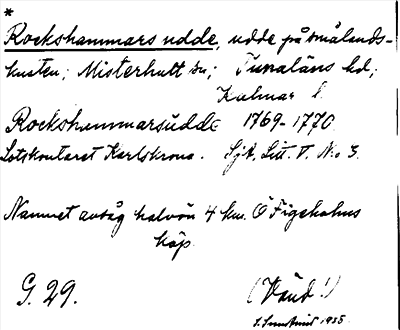 *
Rockshammars udde, udde på smålands-
kusten; Misterhult sn; Tunaläns hd;
Kalmar l.
Rockshammarsudde 1769-1770
Lotskontoret Karlskrona. SjA, Litt. V. No 3.
Namnet avsåg halvön 4 km. Ö Figeholms
köp.
G. 29. (Vänd!)
1935